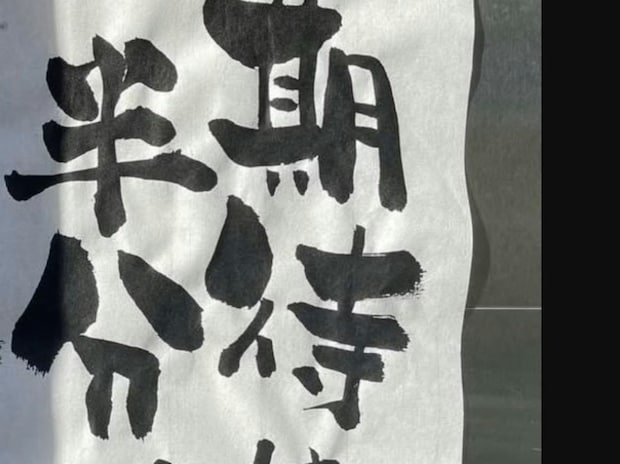 期待
半分